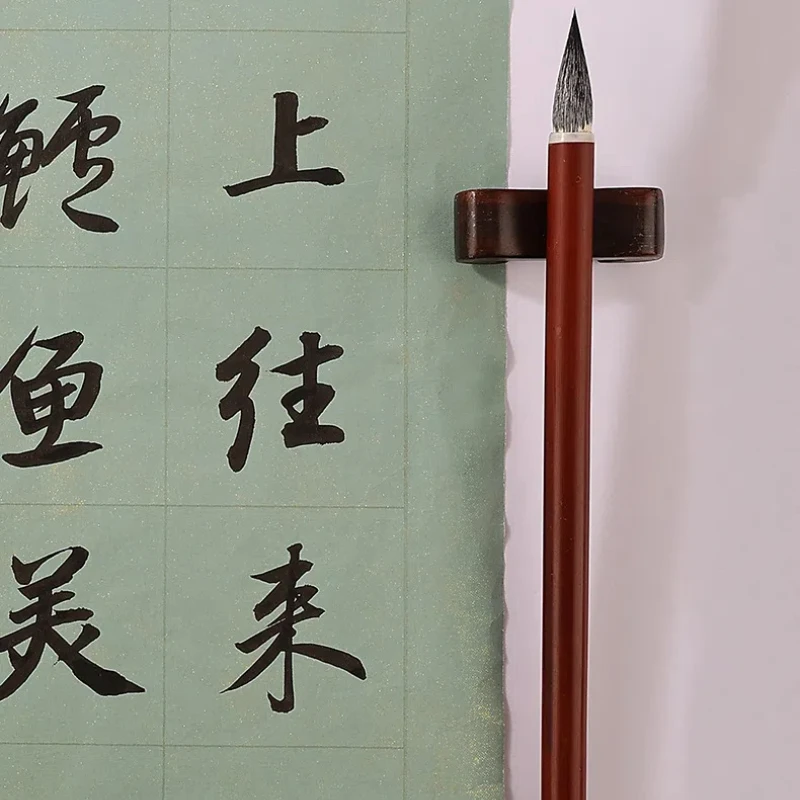 上往来
鲈鱼美